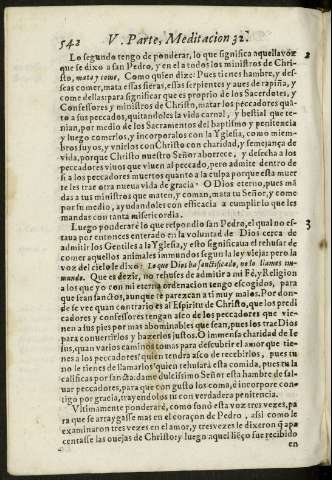 542 V. Parte, Meditacion 32.
Lo segundo tengo de ponderar, lo que significa aquella voz 2
que se dixo a san Pedro, y en el a todos los ministros de Chri-
sto, mata y come, Como quien dize: Pues tienes hambre, y des-
seas comer, mata essas fieras, essas serpientes y aues de rapiña, y
come dellas: para significar que es proprio de los Sacerdotes, y
Confessores y ministros de Christo, matar los peccadores quã-
to a sus peccados, quitandoles la vida carnal, y bestial que te-
nian, por medio de los Sacramentos del baptismo y penitencia
y luego comerlos, y incorporalos con la Yglesia, como miem-
bros suyos, y vnirlos con Christo con charidad, y semejança de
vida, porque Christo nuestro Señor aborrece, y desecha a los
peccadores viuos que viuen al peccado, pero admite dentro de
si a los peccadores muertos quanto a la culpa porque esta muer
te les trae otra nueua vida de gracia. O Dios eterno, pues mã
das a tus ministros que maten, y coman, mata tu Señor, y come
por su medio, ayudandoles con efficacia a cumplir lo que les
mandas con tanta misericordia.
Luego ponderarè lo que respondio san Pedro, el qual no es- 3
taua por entonces enterado en la voluntad de Dios cerca de
admitir los Gentiles a la Yglesia, y esto significaua el rehusar de
comer aquellos animales immundos segun la ley vieja: pero la
voz del cielo le dixo: Lo que Dios ha sanctificado, no lo llames im-
mundo. Que es dezir, no rehuses de admitir a mi Fè, y Religion
a los que yo con mi eterna ordenacion tengo escogidos, para
que sean sanctos, aunque te parezcan a ti muy malos. Por don-
de se vee quan contrario es al Espiritu de Christo, que los predi
cadores y confessores tengan asco de los peccadores que vie-
nen a sus pies por mas abominables que sean, pues los trae Dios
para conuertirlos y hazerlos justos. O immensa charidad de Ie
sus, quan varios caminos tomas para descubrir el amor que tie-
nes a los peccadores: quien tendra asco de recebirlos, pues tu
no le tienes de llamarlos? quien rehusarà esta comida, pues tu la
calificas por sancta: dame dulcissimo Señor esta hambre de sal-
uar peccadores, para que con gusto los coma, è incorpore con-
tigo por gracia, trayendolos tu con verdadera penitencia.
Vltimamente ponderarè, como sonò esta voz tres vezes, pa
ra que se arraygasse mas en el coraçon de Pedro, assi como le
examinaron tres vezes en el amor, y tres vezes le dixeron q̃ apa
centasse las ouejas de Christo: y luego aquel lienço fue recibido
en